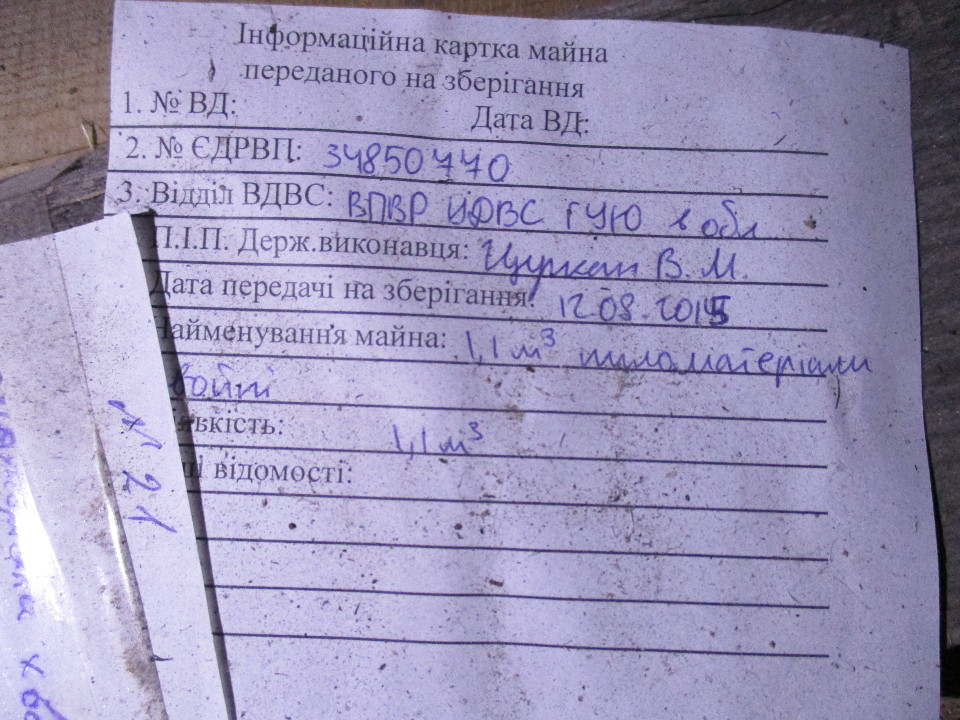 Інформаційна картка майна
переданого на зберігання
1. № ВД: Дата ВД:
2. № ЄДРВП: 34850770
3. Відділ ВДВС: ВПВР УДВС ГУЮ в обл
П.І.П. Держ.виконавця: Цуркан В. М.
Дата передачі на зберігання: 12 08. 2015
айменування майна: 1,1 м³ пиломатеріали
войні
лькість: 1,1 м³
ші відомості:
№ 21